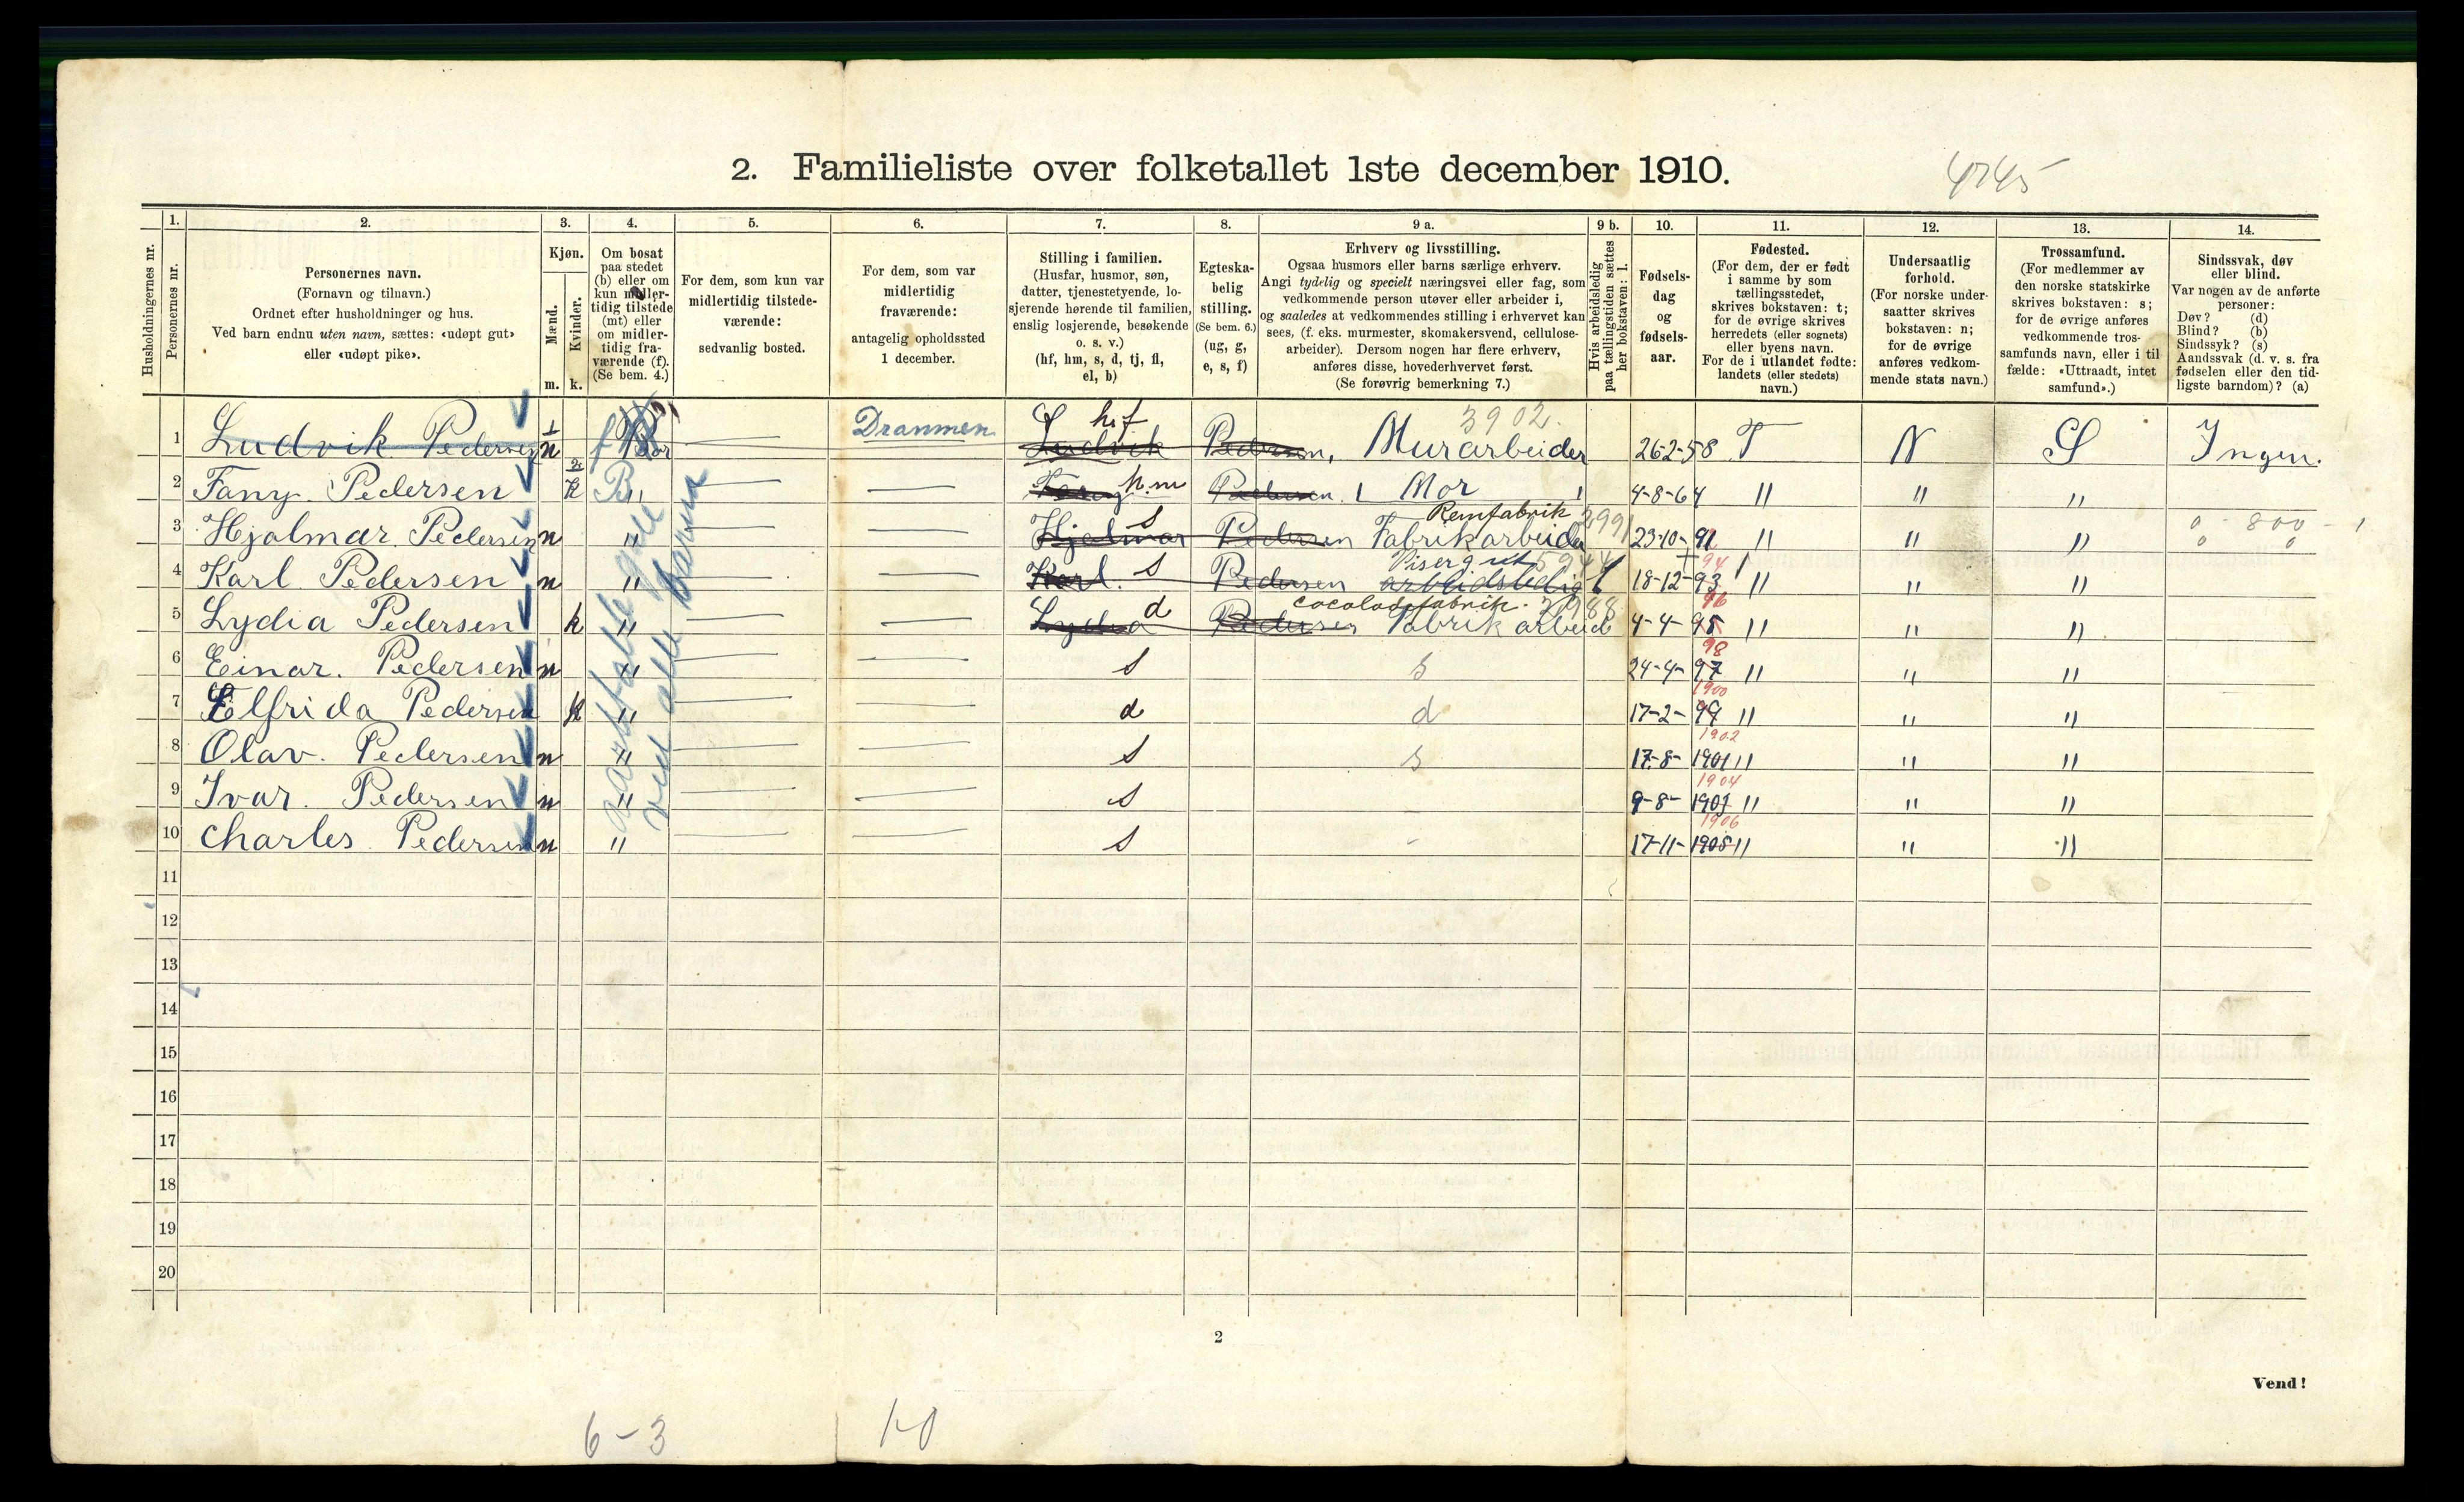 2. Familieliste over folketallet 1ste december 1910.
4745
Husholdningernes nr.
1. Personernes nr.
2. Personernes navn.
(Fornavn og tilnavn.)
Ordnet efter husholdninger og hus.
Ved barn endnu uten navn, sættes: «udøpt gut»
eller «udøpt pike».
3. Kjøn.
Mænd. m.
Kvinder. k.
4. Om bosat
paa stedet
(b) eller om
kun midler-
tidig tilstede
(mt) eller
om midler-
tidig fra-
værende (f).
(Se bem. 4.)
5. For dem, som kun var
midlertidig tilstede-
værende:
sedvanlig bosted.
6. For dem, som var
midlertidig
fraværende:
antagelig opholdssted
1 december.
7. Stilling i familien.
(Husfar, husmor, søn,
datter, tjenestetyende, lo-
sjerende hørende til familien,
enslig losjerende, besøkende
o. s. v.)
(hf, hm, s, d, tj, fl,
el, b)
8. Egteska-
belig
stilling.
(Se bem. 6.)
(ug, g,
e, s, f)
9 a. Erhverv og livsstilling.
Ogsaa husmors eller barns særlige erhverv.
Angi tydelig og specielt næringsvei eller fag, som
vedkommende person utøver eller arbeider i,
og saaledes at vedkommendes stilling i erhvervet kan
sees, (f. eks. murmester, skomakersvend, cellulose-
arbeider). Dersom nogen har flere erhverv,
anføres disse, hovederhvervet først.
(Se forøvrig bemerkning 7.)
9 b. Hvis arbeidsledig
paa tællingstiden sættes
her bokstaven: l.
10. Fødsels-
dag
og
fødsels-
aar.
11. Fødested.
(For dem, der er født
i samme by som
tællingsstedet,
skrives bokstaven: t;
for de øvrige skrives
herredets (eller sognets)
eller byens navn.
For de i utlandet fødte:
landets (eller stedets)
navn.)
12. Undersaatlig
forhold.
(For norske under-
saatter skrives
bokstaven: n;
for de øvrige
anføres vedkom-
mende stats navn.)
13. Trossamfund.
(For medlemmer av
den norske statskirke
skrives bokstaven: s;
for de øvrige anføres
vedkommende tros-
samfunds navn, eller i til
fælde: «Uttraadt, intet
samfund».)
14. Sindssvak, døv
eller blind.
Var nogen av de anførte
personer:
Døv? (d)
Blind? (b)
Sindssyk? (s)
Aandssvak (d. v. s. fra
fødselen eller den tid-
ligste barndom)? (a)
3902.
1 Ludvik Pedersen n f Drammen Ludvik hf Pedersen, Murarbeider 26-2-58 T N S Ingen.
2 Fany Pedersen k B " Fany h.m Pedersen Mor 4-8-64 " " "
Remfabrik 2991
0 - 800 - 1
3 Hjalmar Pedersen n " Hjalmar s Pedersen Fabrikarbeider 23-10-91 " " "
Viserg ut 5944 94
4 Karl Pedersen n " Karl s Pedersen arbeidsledig l 18-12-93 " " "
cocoladefabrik. 96
5 Lydia Pedersen k " Lydia d Pedersen Fabrik arbeid 4-4-95 " " "
98
6 Einar. Pedersen n " s s 24-4-97 " " "
1900
7 Elfrida Pedersen k " d d 17-2-99 " " "
1902
8 Olav. Pedersen n " s s 17-8-1901 " " "
1904
9 Ivar. Pedersen n " s 9-8-1907 " " "
1906
10 Charles Pedersen n " s 17-11-1905 " " "
11
12
13
14
15
16
17
18
19
20
2
Vend!
6-3
1-0